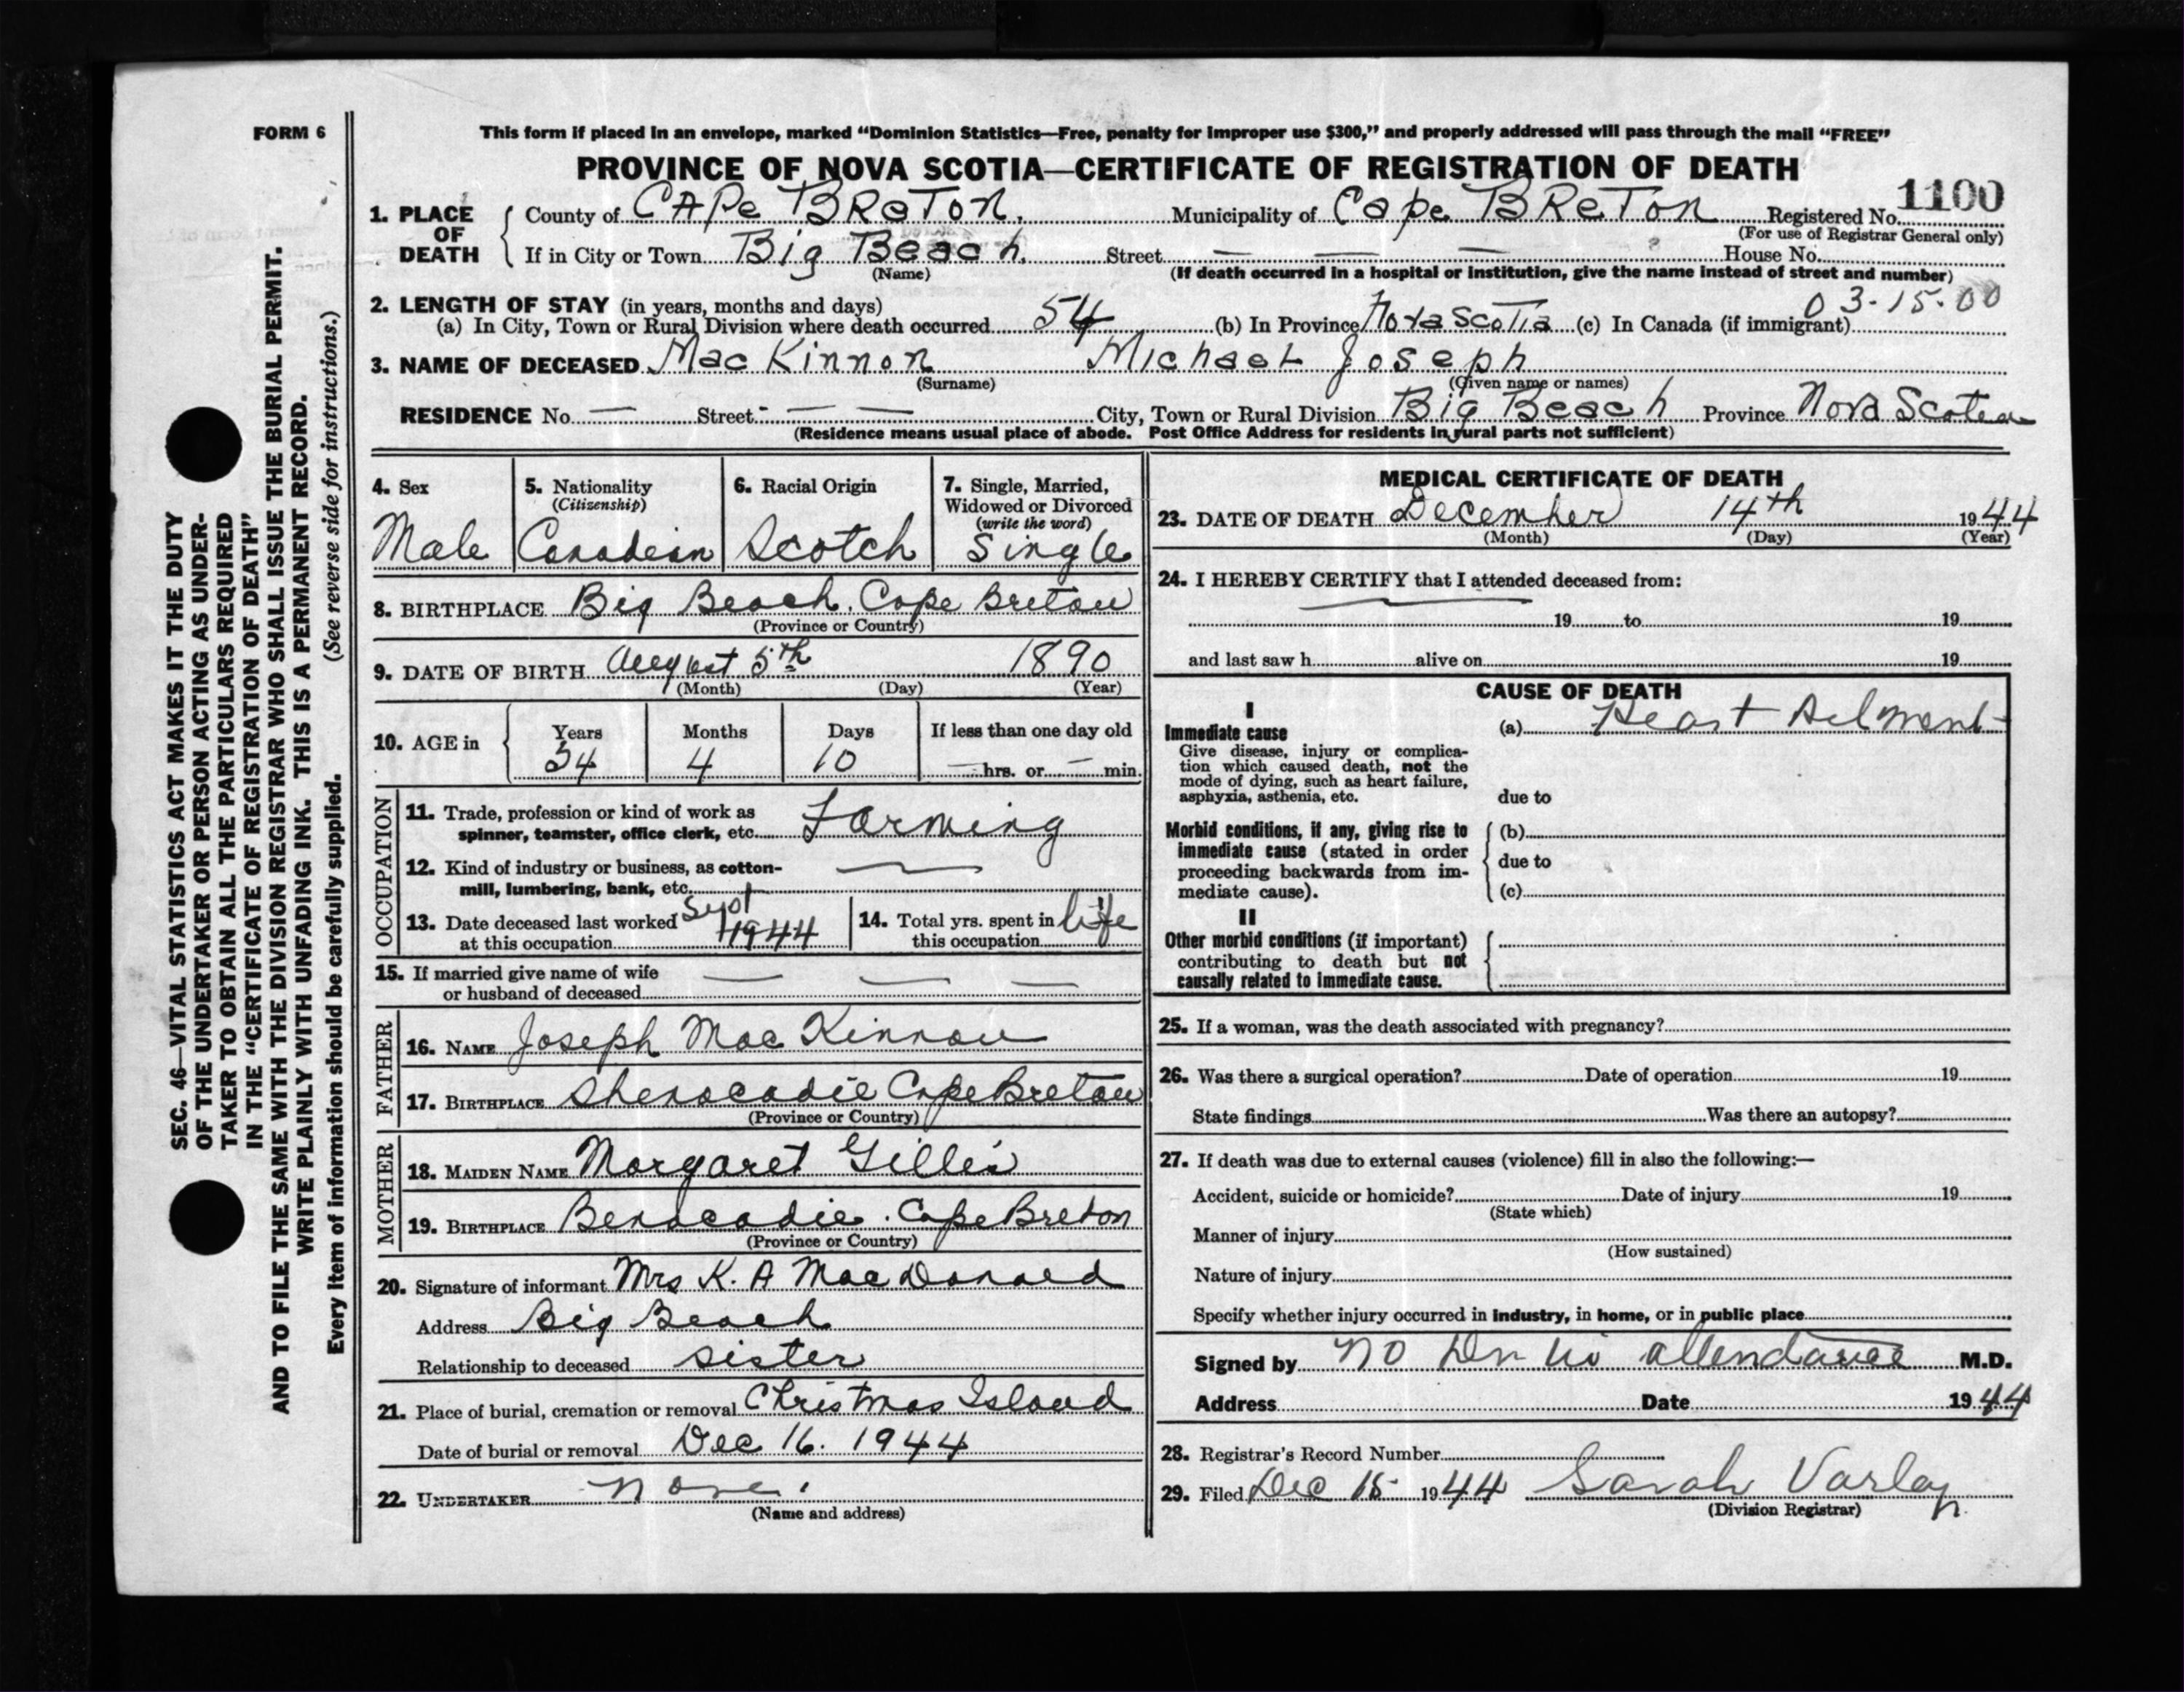 FORM 6
This form if placed in an envelope, marked "Dominion Statistics—Free, penalty for improper use $300," and properly addressed will pass through the mail "FREE"
PROVINCE OF NOVA SCOTIA—CERTIFICATE OF REGISTRATION OF DEATH
1100
1. PLACE OF DEATH
County of Cape Breton. Municipality of Cape Breton Registered No.
(For use of Registrar General only)
If in City or Town Big Beach. Street — — — House No.
(Name) (If death occurred in a hospital or institution, give the name instead of street and number)
03-15-00
2. LENGTH OF STAY (in years, months and days)
(a) In City, Town or Rural Division where death occurred 54 (b) In Province Nova Scotia (c) In Canada (if immigrant)
3. NAME OF DECEASED MacKinnon Michael Joseph
(Surname) (Given name or names)
RESIDENCE No. — Street — — City, Town or Rural Division Big Beach Province Nova Scotia
(Residence means usual place of abode. Post Office Address for residents in rural parts not sufficient)
4. Sex Male
5. Nationality (Citizenship) Canadian
6. Racial Origin Scotch
7. Single, Married, Widowed or Divorced (write the word) Single
8. BIRTHPLACE Big Beach. Cape Breton
(Province or Country)
9. DATE OF BIRTH August 5th 1890
(Month) (Day) (Year)
10. AGE in Years Months Days If less than one day old
54 4 10 — hrs. or — min.
OCCUPATION
11. Trade, profession or kind of work as
spinner, teamster, office clerk, etc. Farming
12. Kind of industry or business, as cotton-
mill, lumbering, bank, etc. —
13. Date deceased last worked Sept
at this occupation 1944
14. Total yrs. spent in life
this occupation
15. If married give name of wife
or husband of deceased — — —
FATHER
16. NAME Joseph MacKinnon
17. BIRTHPLACE Shenacadie Cape Breton
(Province or Country)
MOTHER
18. MAIDEN NAME Margaret Gillis
19. BIRTHPLACE Benacadie. Cape Breton
(Province or Country)
20. Signature of informant Mrs K. A MacDonald
Address Big Beach
Relationship to deceased sister
21. Place of burial, cremation or removal Christmas Island
Date of burial or removal Dec 16. 1944
22. UNDERTAKER none.
(Name and address)
MEDICAL CERTIFICATE OF DEATH
23. DATE OF DEATH December 14th 1944
(Month) (Day) (Year)
24. I HEREBY CERTIFY that I attended deceased from:
19 to 19
and last saw h alive on 19
CAUSE OF DEATH
I
Immediate cause
Give disease, injury or complica-
tion which caused death, not the
mode of dying, such as heart failure,
asphyxia, asthenia, etc.
(a) Heart Ailment
due to
Morbid conditions, if any, giving rise to
immediate cause (stated in order
proceeding backwards from im-
mediate cause).
(b)
due to
(c)
II
Other morbid conditions (if important)
contributing to death but not
causally related to immediate cause.
25. If a woman, was the death associated with pregnancy?
26. Was there a surgical operation? Date of operation 19
State findings Was there an autopsy?
27. If death was due to external causes (violence) fill in also the following:—
Accident, suicide or homicide? Date of injury 19
(State which)
Manner of injury
(How sustained)
Nature of injury
Specify whether injury occurred in industry, in home, or in public place
Signed by no Dr in attendance M.D.
Address Date 1944
28. Registrar's Record Number
29. Filed Dec 15 1944 Sarah Varley
(Division Registrar)
SEC. 46—VITAL STATISTICS ACT MAKES IT THE DUTY
OF THE UNDERTAKER OR PERSON ACTING AS UNDER-
TAKER TO OBTAIN ALL THE PARTICULARS REQUIRED
IN THE "CERTIFICATE OF REGISTRATION OF DEATH"
AND TO FILE THE SAME WITH THE DIVISION REGISTRAR WHO SHALL ISSUE THE BURIAL PERMIT.
WRITE PLAINLY WITH UNFADING INK. THIS IS A PERMANENT RECORD.
Every item of information should be carefully supplied. (See reverse side for instructions.)